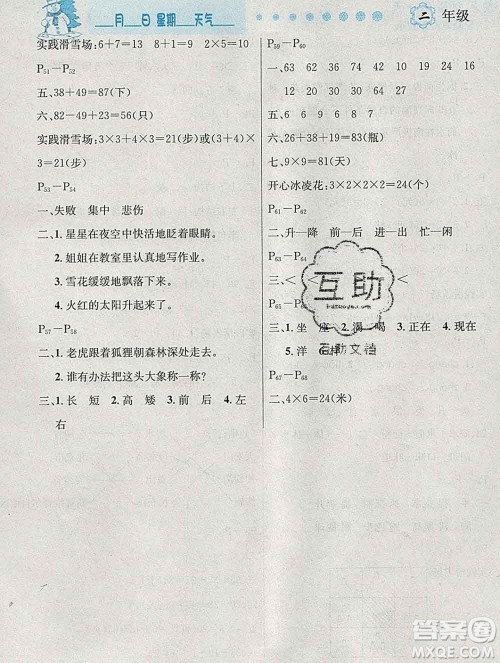 月 日 星期 天气
二 年级
实践滑雪场:6+7=13 8+1=9 2×5=10
P51—P52
五、38+49=87(下)
六、82-49+23=56(只)
实践滑雪场:3×3+4×3=21(步)或(3+4)×
3=21(步)
P53—P54
一、失败 集中 悲伤
二、1.星星在夜空中快活地眨着眼睛。
2.姐姐在教室里认真地写作业。
3.雪花缓缓地飘落下来。
4.火红的太阳升起来了。
P57—P58
二、1.老虎跟着狐狸朝森林深处走去。
2.谁有办法把这头大象称一称?
三、1.长 短 2.高 矮 3.前 后 4.左
右
P59—P60
一、63 32 34 94 74 68
12 90 30 20 64 27
五、6 6 9 8 7
六、38+38+107=183(瓶)
七、9×9=81(天)
开心冰凌花:3×2×2×2=24(个)
P61—P62
二、升—降 前—后 进—出 忙—闲
P63—P64
三、< < <
P65—P66
三、1.坐 座 2.渴 喝 3.正在 4.现在
5.洋 样
P67—P68
二、4×6=24(米)
互助
互助文档
答案圈
MXQE.COM